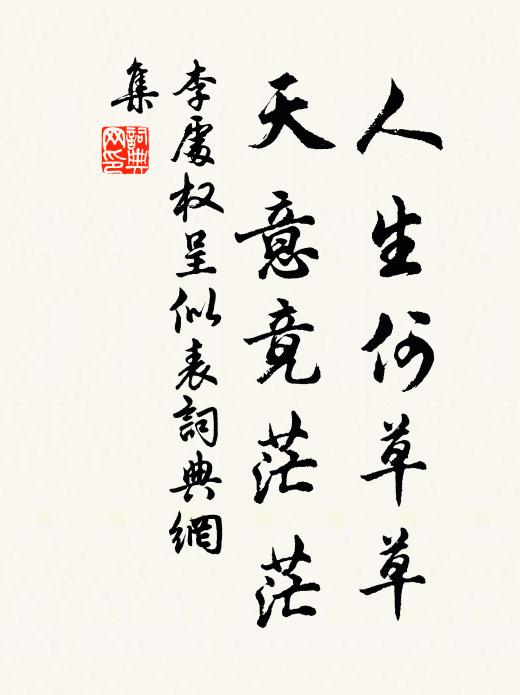 人生何草草
天意竟茫茫
李處权呈似表詞典網
集
詞典
网印